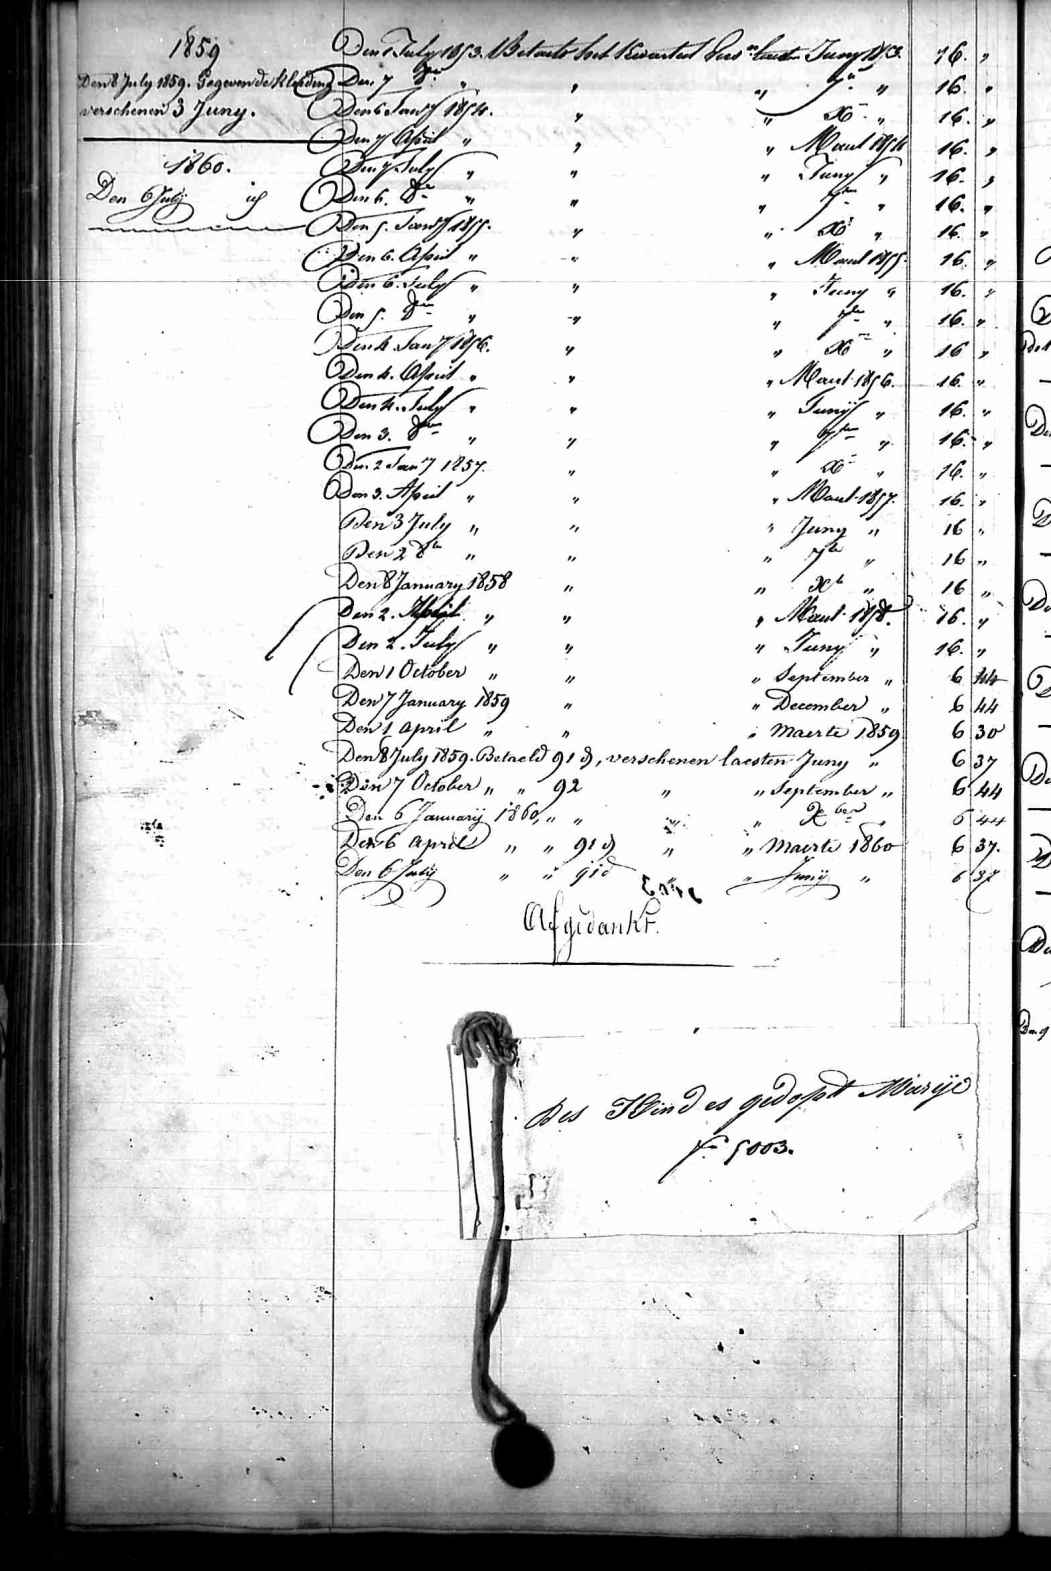 1859
Den 8 July 1859. Gegeven de Kleeding
verschenen 3 Juny.
1860.
Den 6 July id
Den 1 July 1853. Betaald het Kwartaal laesten Juny 1853. 16. "
Den 7 8re " " " 7re " 16. "
Den 6 Jany 1854. " " Xre " 16. "
Den 7 April " " " Maart 1854 16. "
Den 7 July " " " Juny " 16. "
Den 6. 8re " " " 7re " 16. "
Den 5. Jany 1855. " " Xre " 16. "
Den 6. April " " " Maart 1855. 16. "
Den 6. July " " " Juny " 16. "
Den 5. 8re " " " 7re " 16. "
Den 4. Jany 1856. " " Xre " 16 "
Den 4. April " " " Maart 1856. 16. "
Den 4. July " " " Junij " 16. "
Den 3. 8re " " " 7re " 16. "
Den 2 Jany 1857. " " Xre " 16. "
Den 3. April " " " Maart 1857. 16. "
Den 3 July " " " Juny " 16 "
Den 2 8re " " " 7re " 16 "
Den 8 January 1858 " " Xre " 16 "
Den 2. April " " " Maart 1858. 16. "
Den 2. July " " " Juny " 16. "
Den 1 October " " " September " 6 44
Den 7 January 1859 " " December " 6 44
Den 1 April " " " Maerte 1859 6 30
Den 8 July 1859. Betaeld 91 d, verschenen laesten Juny " 6 37
Den 7 October " " 92 " " September " 6 44
Den 6 Januarij 1860, " " " " Xber " 6 44
Den 6 April " " 91 d " " Maerte 1860 6 37.
Den 6 July " " 91 d " Junij " 6 37
Afgedankt.
Des Kindes gedopt Marije
No 5003.